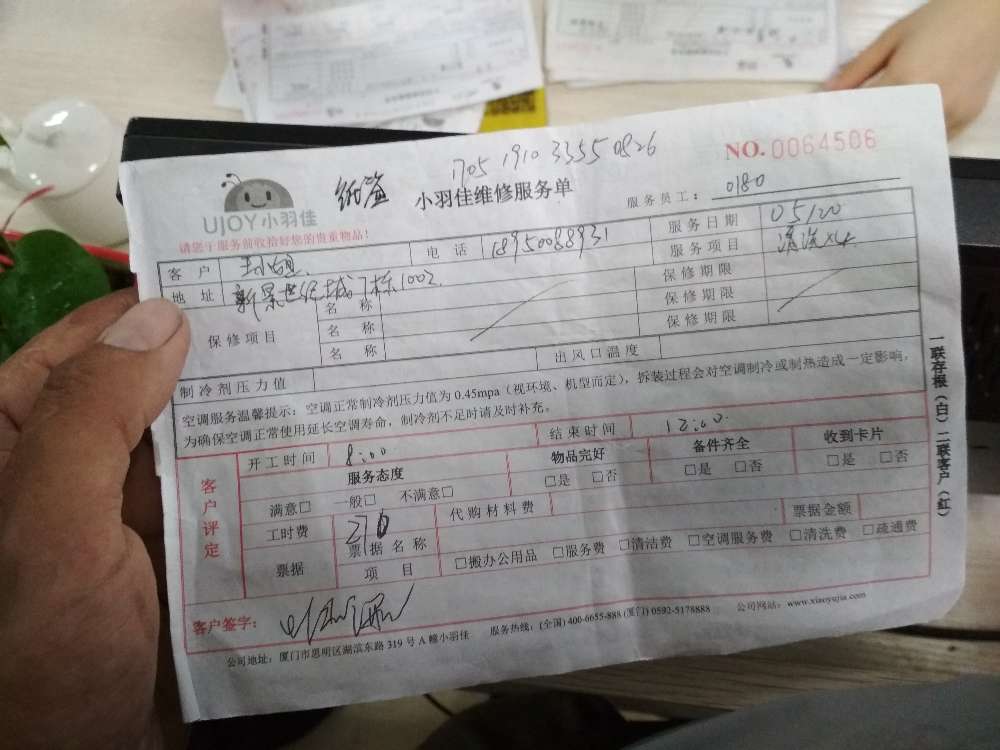 1705 1910 3355 0826
NO. 0064506
UJOY小羽佳
小羽佳维修服务单
服务员工： 0180
请您于服务前收拾好您的贵重物品！
客户
电话 18950088931
服务日期 05/20
地址 新景世纪城7栋1002
服务项目 清洗×4
保修项目
名称 保修期限
名称 保修期限
名称 保修期限
制冷剂压力值 出风口温度
空调服务温馨提示：空调正常制冷剂压力值为 0.45mpa（视环境、机型而定），拆装过程会对空调制冷或制热造成一定影响，
为确保空调正常使用延长空调寿命，制冷剂不足时请及时补充。
客户评定
开工时间 8:00 结束时间 12:00
服务态度 物品完好 备件齐全 收到卡片
满意□ 一般□ 不满意□ □是 □否 □是 □否 □是 □否
工时费 210 代购材料费 票据金额
票据 票据名称
项目 □搬办公用品 □服务费 □清洁费 □空调服务费 □清洗费 □疏通费
客户签字：
公司地址：厦门市思明区湖滨东路 319 号 A 幢小羽佳 服务热线：(全国) 400-6655-888 (厦门) 0592-5178888 公司网站：www.xiaoyujia.com
一联存根（白）二联客户（红）